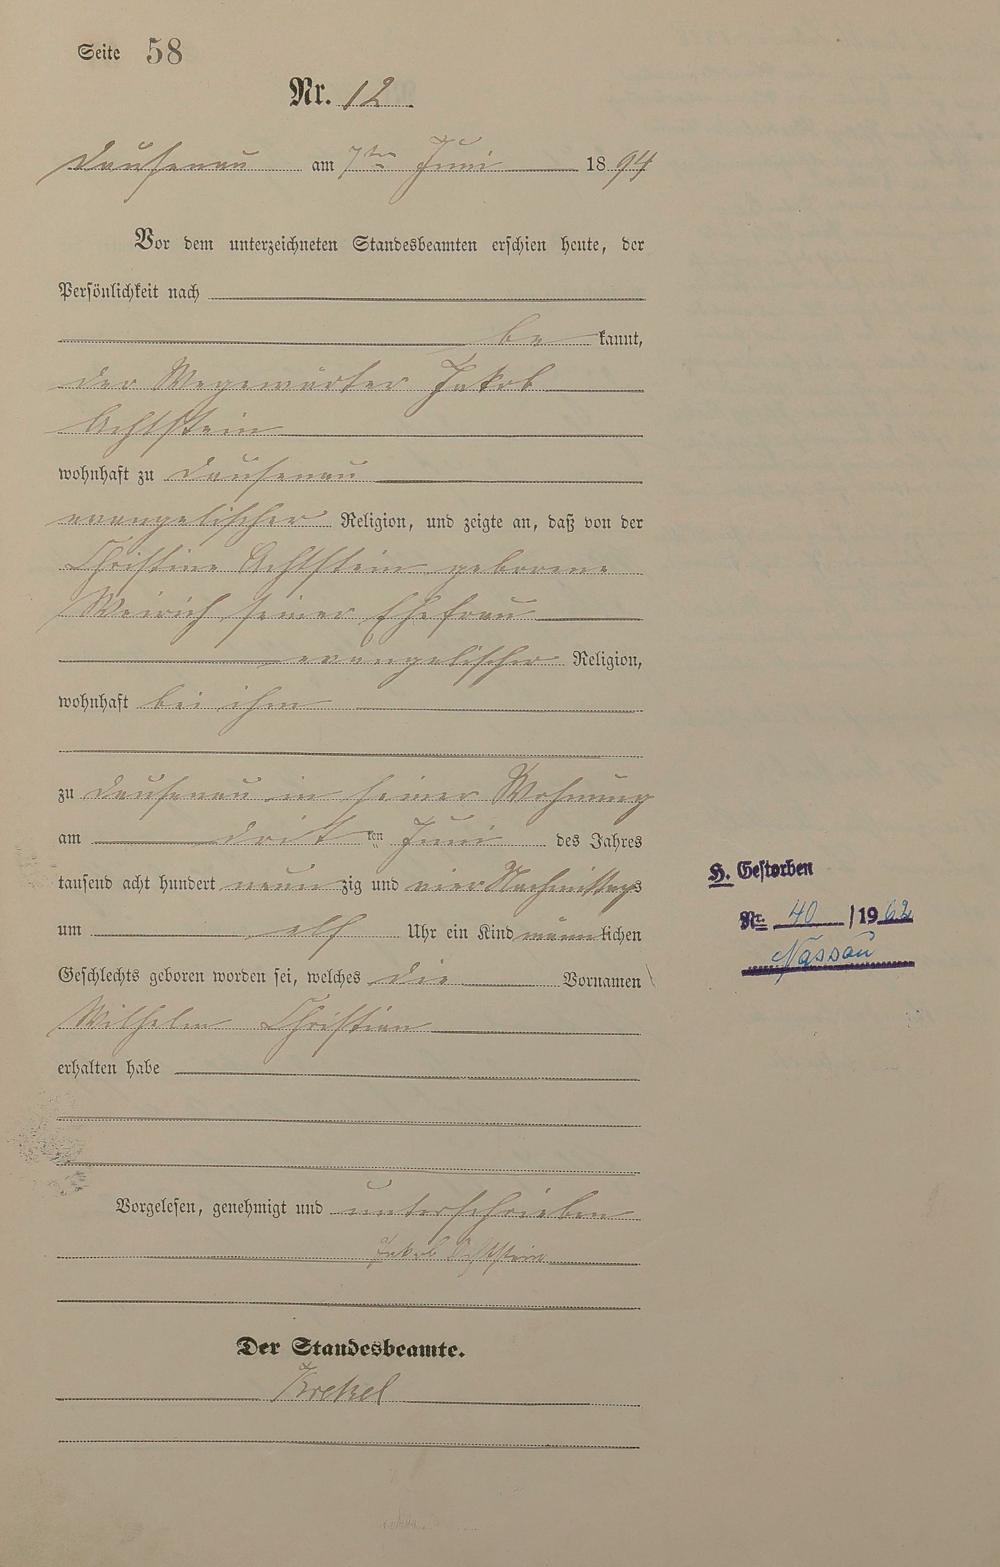 Seite 58
Nr. 12
Dausenau am 7ten Juni 1894
Vor dem unterzeichneten Standesbeamten erschien heute, der
Persönlichkeit nach
bekannt,
der Wegewärter Jakob
Achtstein
wohnhaft zu Dausenau
evangelischer Religion, und zeigte an, daß von der
Christine Achtstein geborene
Weirich seiner Ehefrau
evangelischer Religion,
wohnhaft bei ihm
zu Dausenau in seiner Wohnung
am dritten Juni des Jahres
tausend acht hundert neunzig und vier Nachmittags
um elf Uhr ein Kind männlichen
Geschlechts geboren worden sei, welches die Vornamen
Wilhelm Christian
erhalten habe
Vorgelesen, genehmigt und unterschrieben
Jakob Achtstein
Der Standesbeamte.
Krekel
H. Gestorben
Nr. 40 / 1962
Nassau